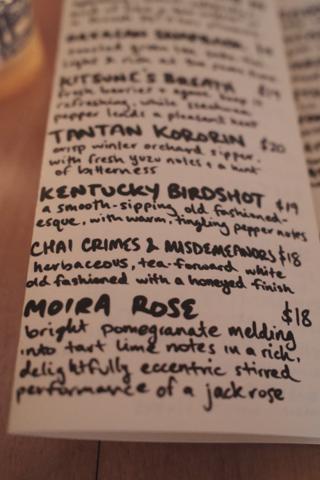 KITSUNE'S BREATH $19
fresh barrier + agave keep it
refreshing, while szechuan
pepper lends a pleasant heat
TANTAN KORORIN $20
crisp winter orchard sipper.
with fresh yuzu notes + a hint
of bitterness
KENTUCKY BIRDSHOT $19
a smooth-sipping, old fashioned-
esque, with warm, tingling pepper notes
CHAI CRIMES & MISDEMEANORS $18
herbaceous, tea-forward white
old fashioned with a honeyed finish
MOIRA ROSE $18
bright pomegranate melding
into tart lime notes in a rich,
delightfully eccentric stirred
performance of a jack rose